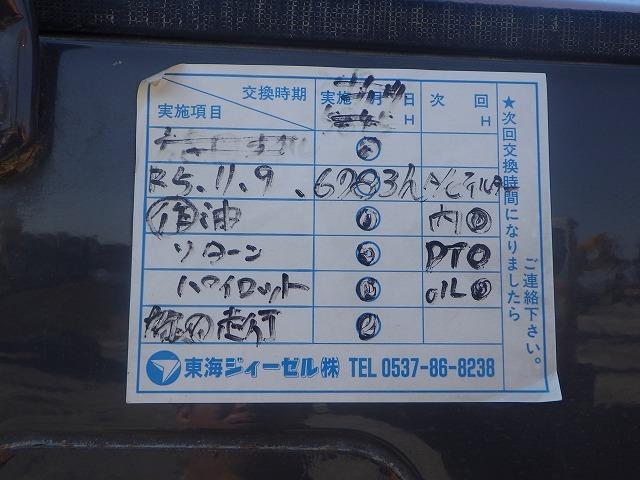 交換時期 実施 月 日 次 回
実施項目 H H
R5.11.9. 6783h
作油 内
リターン PTO
パイロット
走行
東海ジィーゼル㈱ TEL 0537-86-8238
★次回交換時間になりましたら
ご連絡下さい。